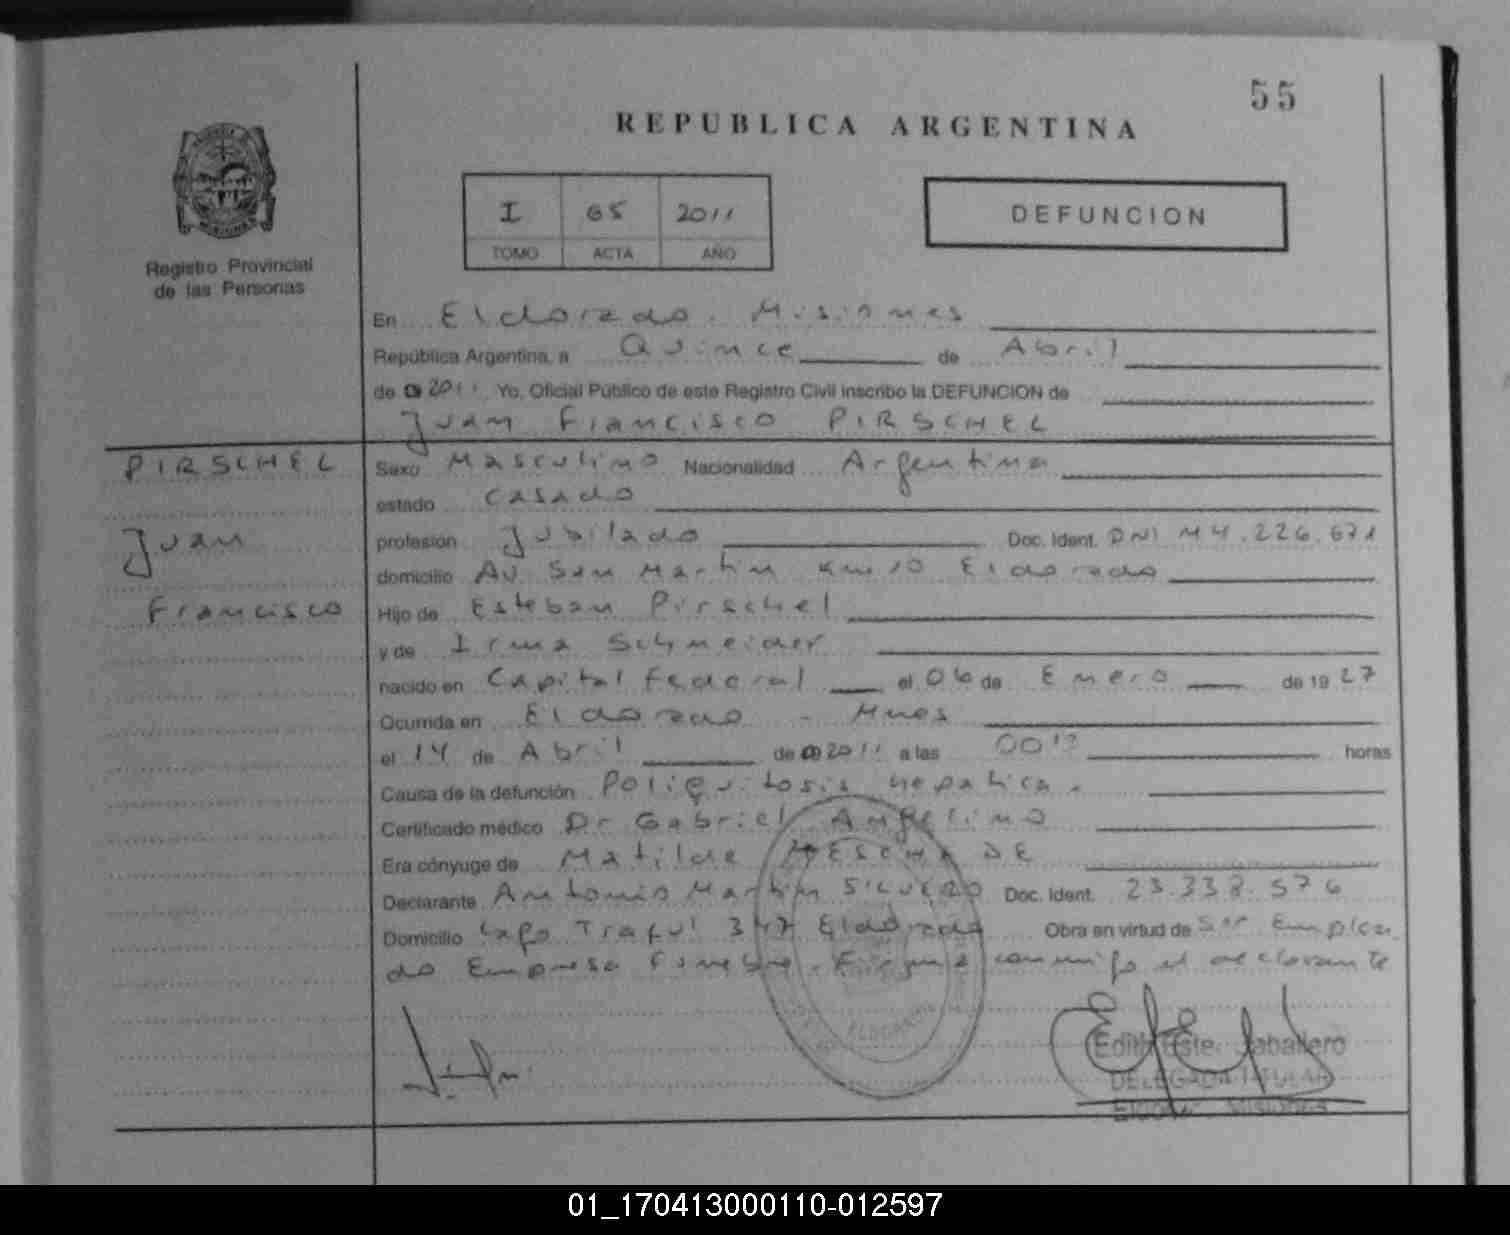 55
REPUBLICA ARGENTINA
I 65 2011
TOMO ACTA AÑO
DEFUNCION
Registro Provincial
de las Personas
En Eldorado. Misiones
República Argentina, a Quince de Abril
de 2011 Yo, Oficial Público de este Registro Civil inscribo la DEFUNCION de
Juan Francisco PIRSCHEL
PIRSCHEL
Juan
Francisco
Sexo Masculino Nacionalidad Argentina
estado Casado
profesion Jubilado Doc. Ident. DNI M4.226.671
domicilio Av San Martin Km 10 Eldorado
Hijo de Esteban Pirschel
y de Irma Schneider
nacido en Capital Federal el 06 de Enero de 19 27
Ocurrida en Eldorado - Mnes
el 14 de Abril de 2011 a las horas
Causa de la defunción Poliquitosis hepatica.
Certificado médico Dr Gabriel Angelino
Era cónyuge de Matilde
Declarante Antonio Martin SILVERO Doc. Ident. 23.338.576
Domicilio Lago Traful 347 Eldorado Obra en virtud de Ser Emplea
do Empresa Funebre. Firma conmigo el declarante
Caballero
DELEGADA TITULAR
01_170413000110-012597